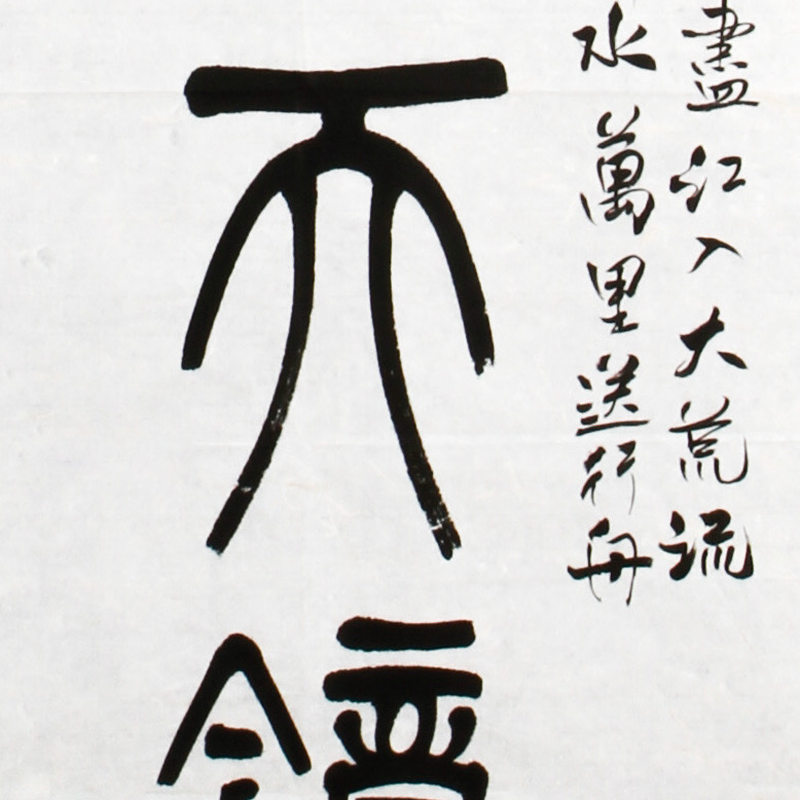 盡江入大荒流
水萬里送行舟
天鏡